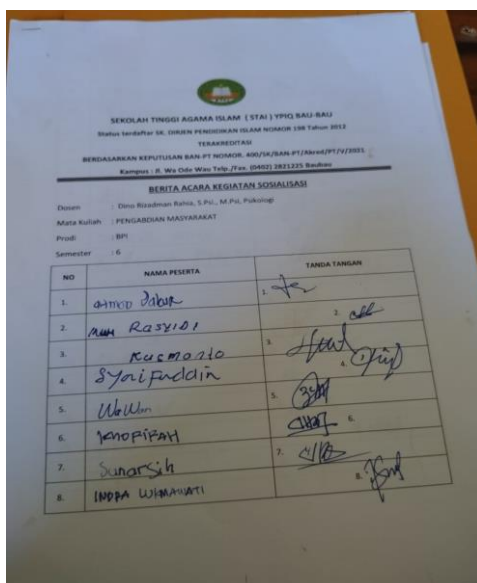 SEKOLAH TINGGI AGAMA ISLAM ( STAI ) YPIQ BAU-BAU
Status terdaftar SK. DIRJEN PENDIDIKAN ISLAM NOMOR 198 Tahun 2012
TERAKREDITASI
BERDASARKAN KEPUTUSAN BAN-PT NOMOR. 400/SK/BAN-PT/Akred/PT/V/2021
Kampus : Jl. Wa Ode Wau Telp./Fax. (0402) 2821225 Baubau
BERITA ACARA KEGIATAN SOSIALISASI
Dosen : Dino Rizadman Rahia, S.Psi., M.Psi, Psikolog
Mata Kuliah : PENGABDIAN MASYARAKAT
Prodi : BPI
Semester : 6
NO NAMA PESERTA TANDA TANGAN
1. 1.
2. RASYIDI 2.
3. Kusmanto 3.
4. Syarifuddin 4.
5. WaWan 5.
6. KHOFIFAH 6.
7. Sunarsih 7.
8. INDRA 8.